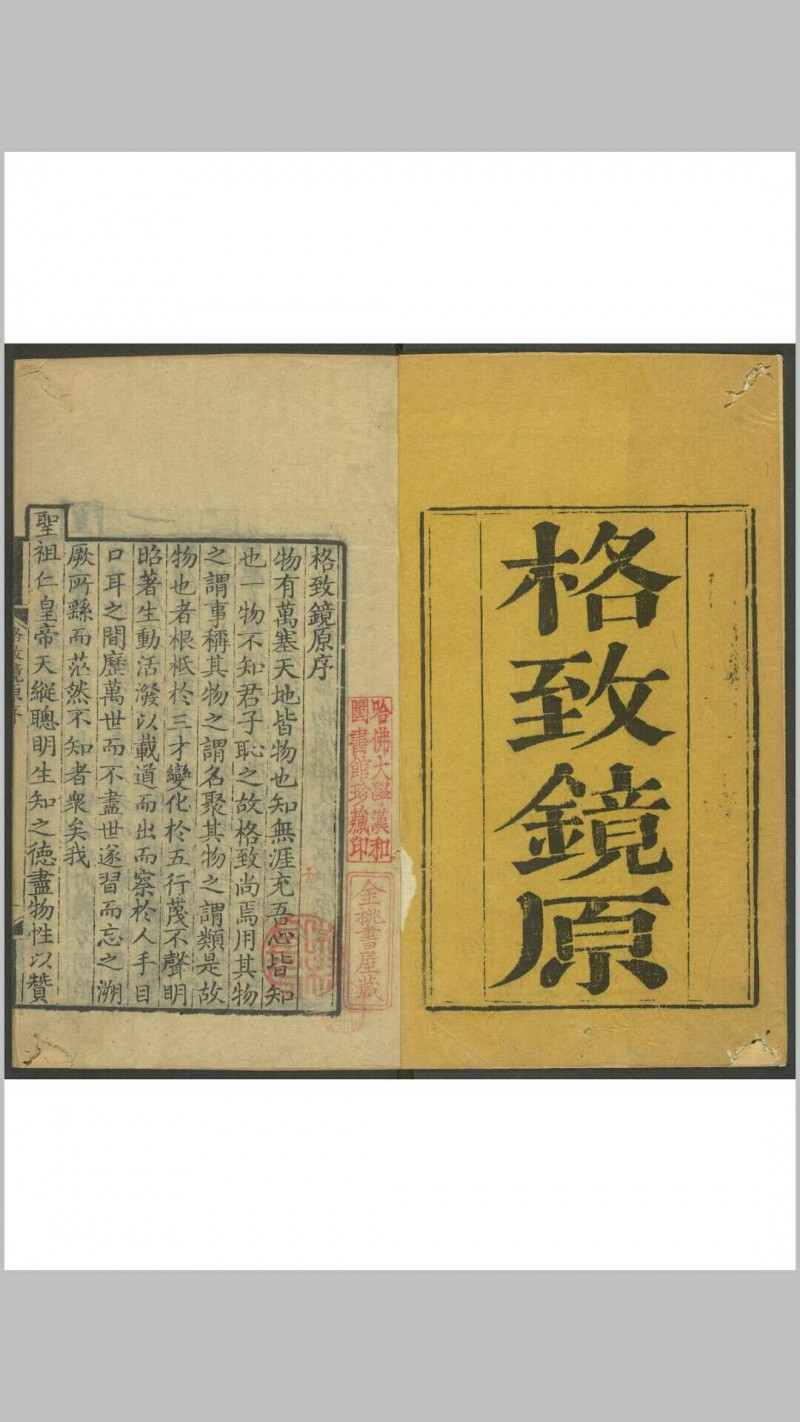 格致鏡原
格致鏡原序
物有萬塞天地皆物也知無涯充吾心皆知
也一物不知君子恥之故格致尚焉用其物
之謂事稱其物之謂名聚其物之謂類是故
物也者根柢於三才變化於五行蔑不聲明
昭著生動活潑以載道而出而察於人手目
口耳之間歷萬世而不盡世遂習而忘之溯
厥所繇而茫然不知者衆矣我
聖祖仁皇帝天縱聰明生知之德盡物性以贊
格致鏡原序
哈佛大學漢和
圖書館珍藏印
金桃書屋藏